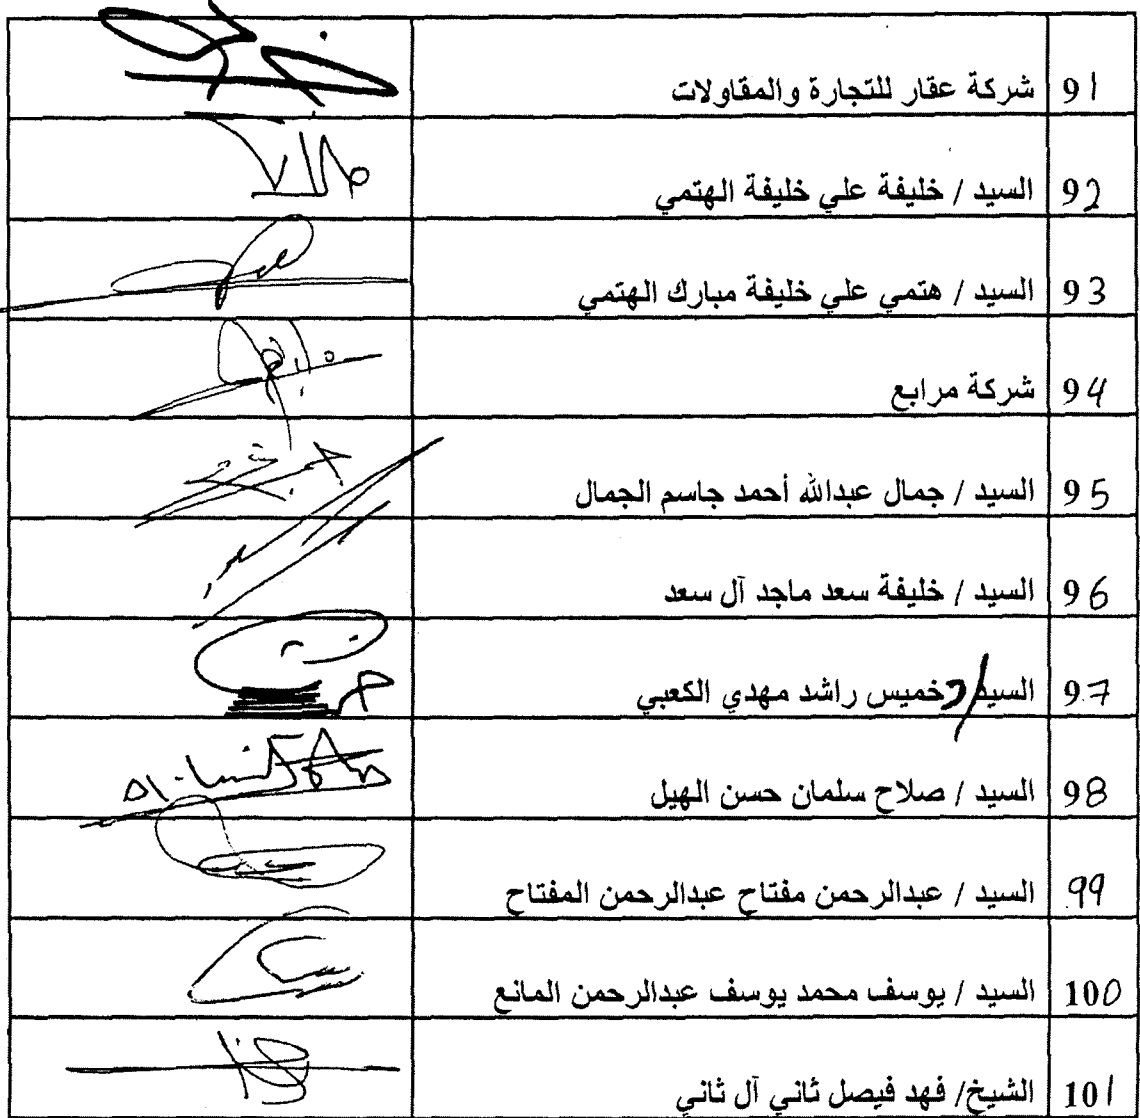 91 شركة عقار للتجارة والمقاولات
92 السيد / خليفة علي خليفة الهتمي
93 السيد / هتمي علي خليفة مبارك الهتمي
94 شركة مرابع
95 السيد / جمال عبدالله أحمد جاسم الجمال
96 السيد / خليفة سعد ماجد آل سعد
97 السيد / خميس راشد مهدي الكعبي
98 السيد / صلاح سلمان حسن الهيل
99 السيد / عبدالرحمن مفتاح عبدالرحمن المفتاح
100 السيد / يوسف محمد يوسف عبدالرحمن المانع
101 الشيخ/ فهد فيصل ثاني آل ثاني